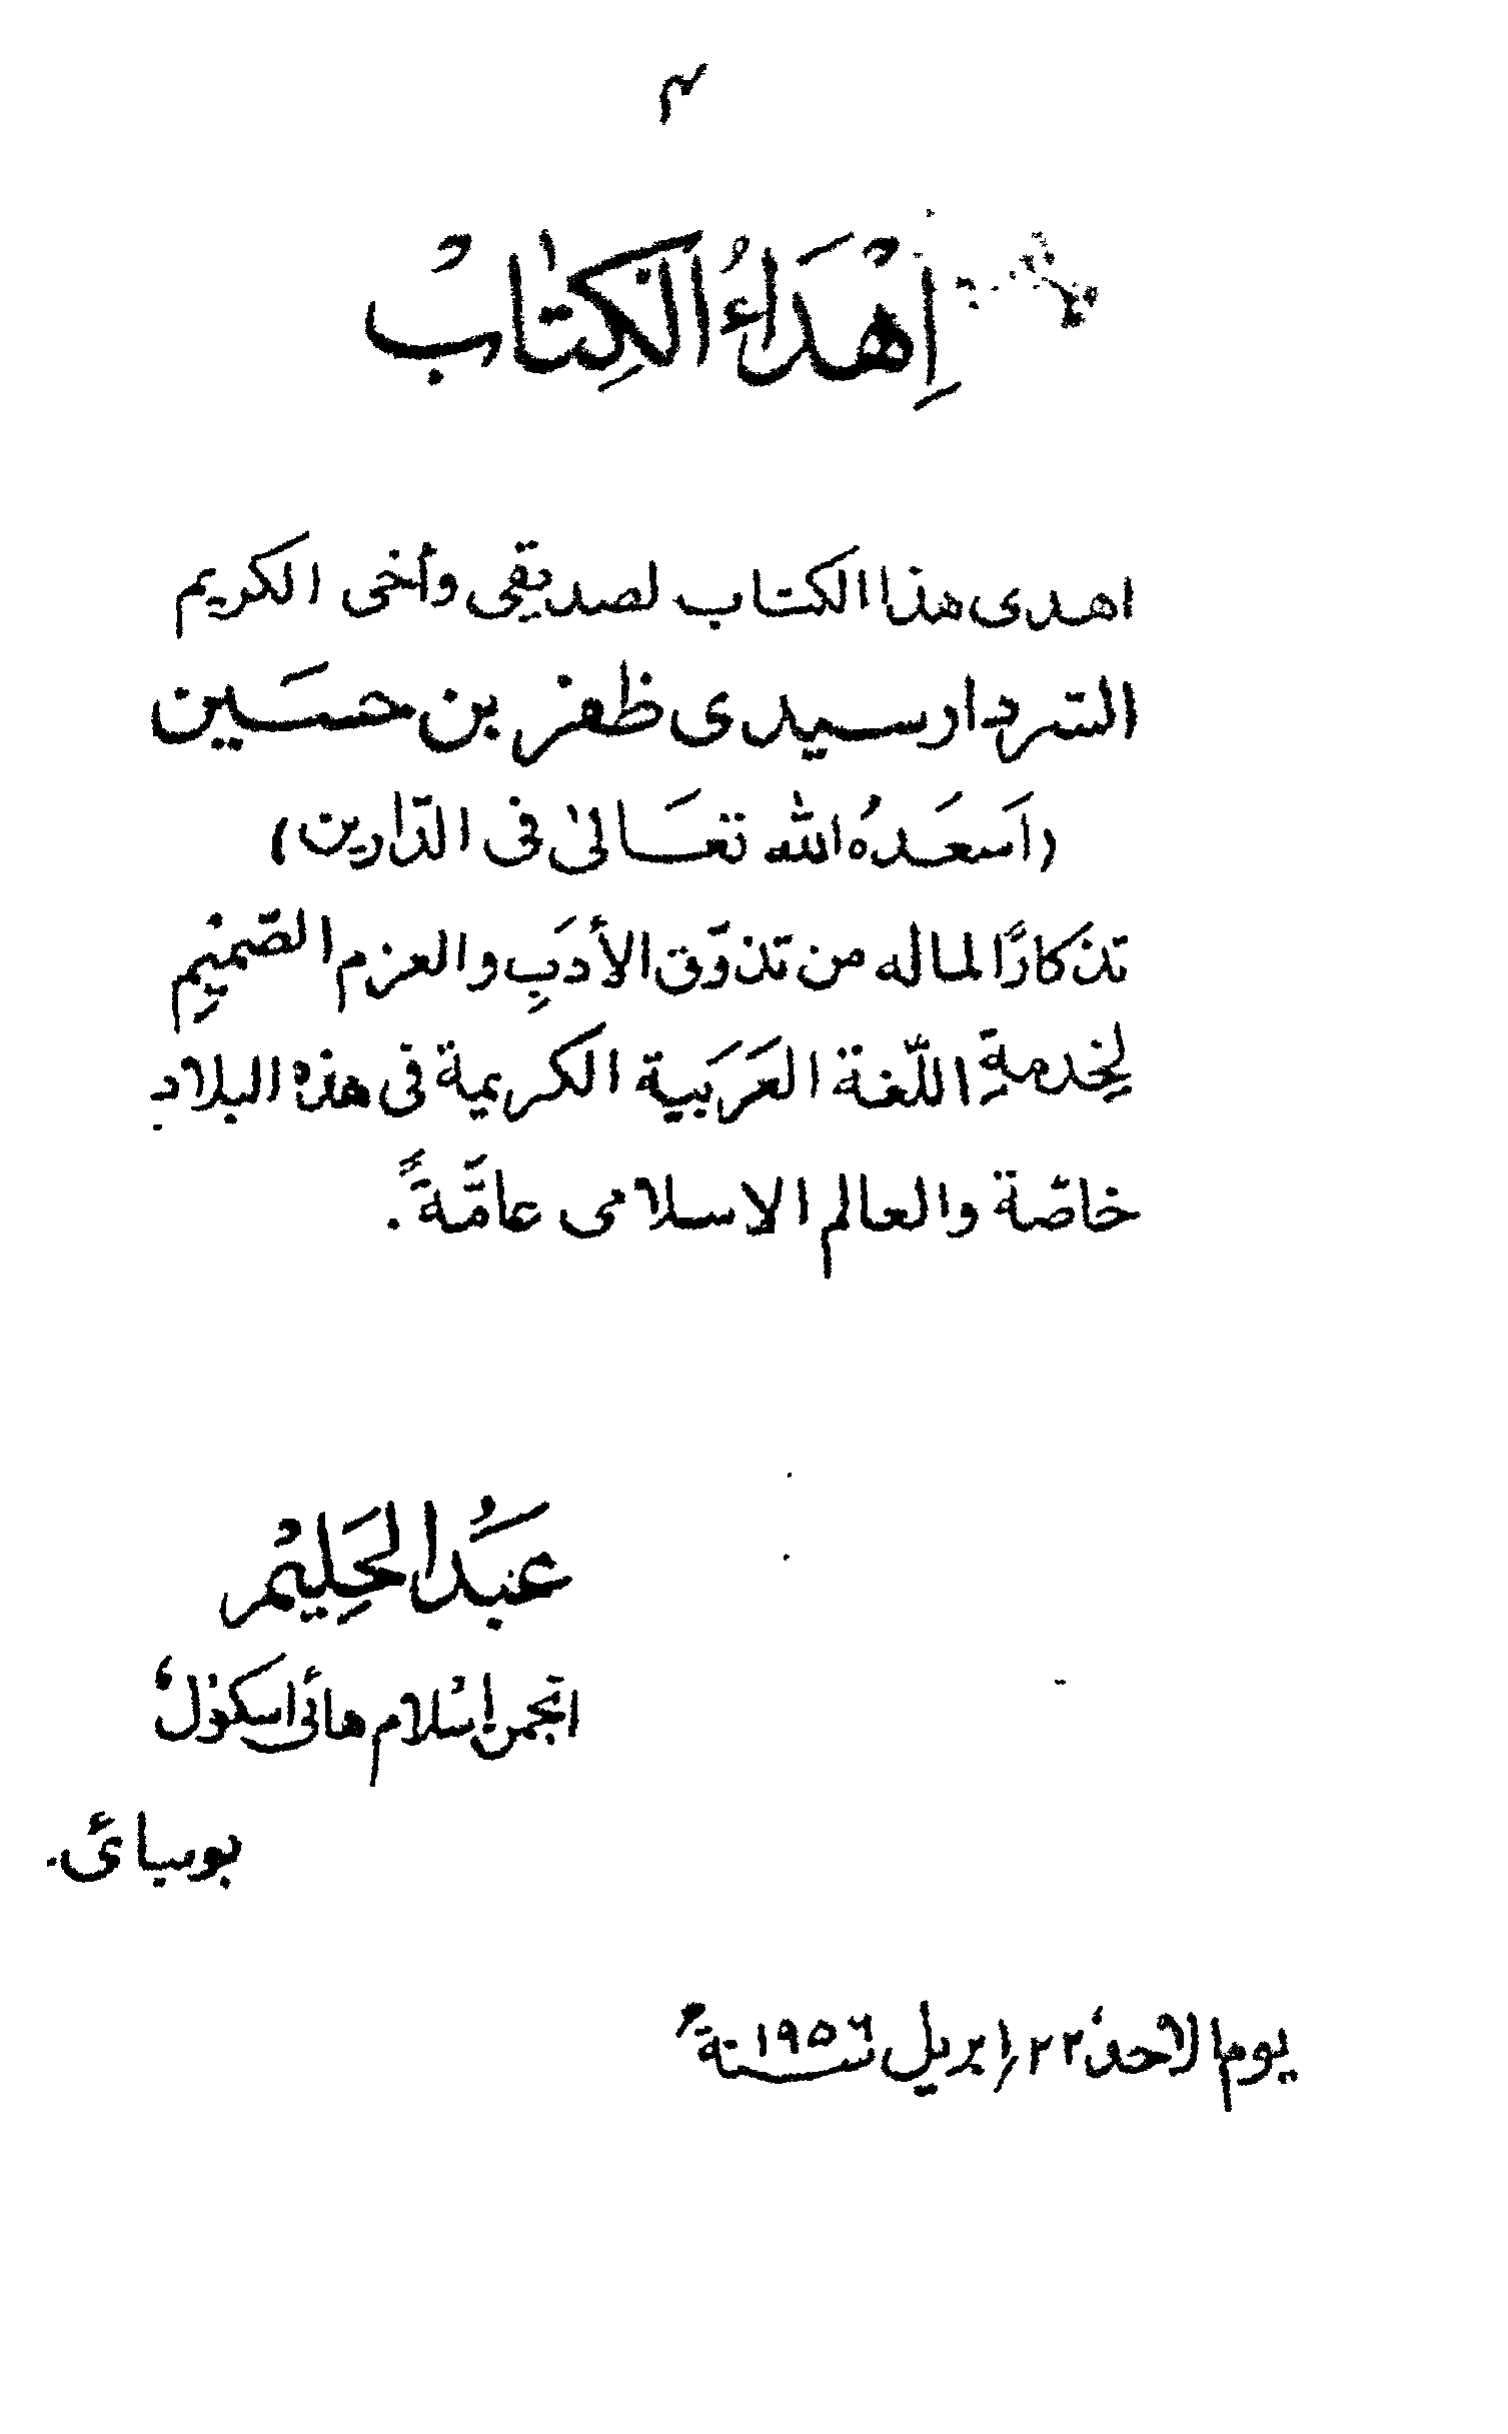 ٣
اِهْدَاءُ الْكِتٰابْ
اهدى هذا الكتاب لصديقِى وأخى الكريم
السّردار سيدى ظفر بن حسَين
(اَسعَدهُ الله تعَالىٰ فى الدّارين)
تذكارًا لماله من تذوّق الأدَبِ والعزم الصّميْمِ
لِخِدمةِ اللّغة العَرَبية الكريمة فى هذه البلاد
خاصّة والعالم الاسلامى عامّةً.
عَبْدُ الْحَلِيْمْ
انجمن اسْلام هائى اسكوْل،
بومبائى.
يوم الاحد، ٢٢/ابريل سنة ١٩٥٦ء